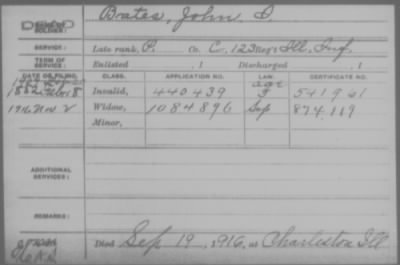 Bates, John
NAME OF SOLDIER:
SERVICE: Late rank, P. Co. C, 123 Reg't Ill. Inf.
TERM OF SERVICE: Enlisted , 1 Discharged , 1
DATE OF FILING. CLASS. APPLICATION NO. LAW. CERTIFICATE NO.
Invalid, 440439 541961
1916 Nov 2 Widow, 1084896 Sep 874,119
Minor,
ADDITIONAL SERVICES:
REMARKS:
Died Sep 19, 1916, at Charleston Ill